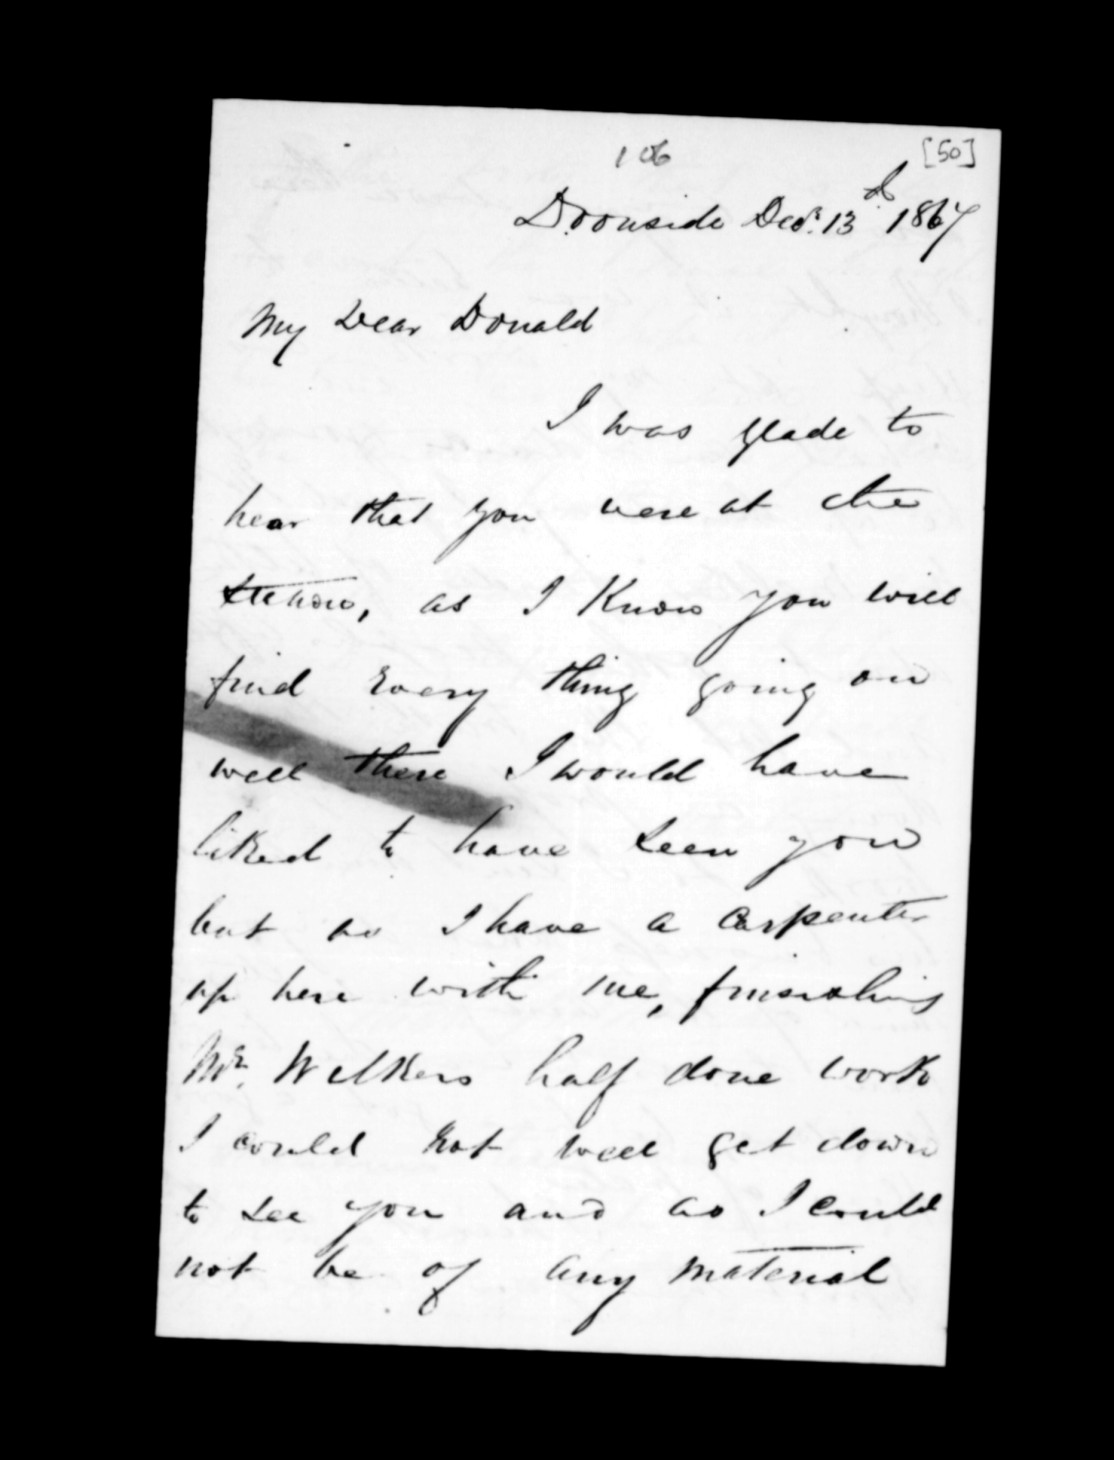 106
[50]
Doonside Decr. 13th 1867
My Dear Donald
I was glade to
hear that you were at the
station, as I Know you will
find every thing going on
well there I would have
liked to have seen you
but as I have a carpenter
up here with me, finishing
Mr. Walkers half done work
I could not well get down
to see you and as I could
not be of any material